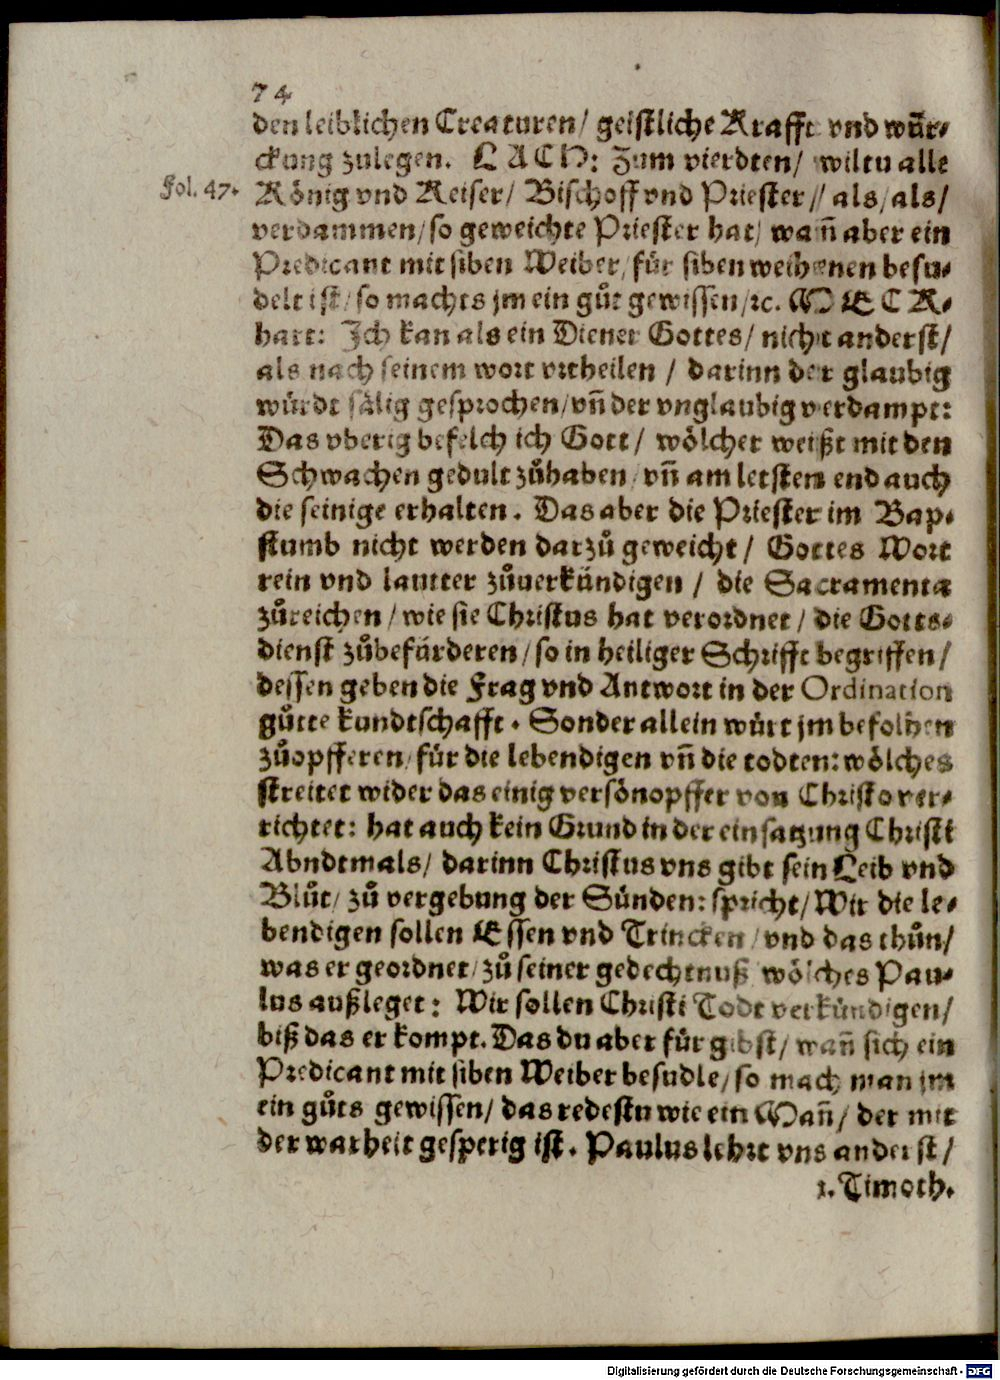 74
den leiblichen Creaturen/ geistliche Krafft vnd wür-
ckung zulegen. LACH: Zum vierdten/ wiltu alle
Fol. 47. König vnd Keiser/ Bischoff vnd Priester// als/als/
verdammen/ so geweichte Priester hat/ wañ aber ein
Predicant mit siben Weiber/ für siben weihenen besu-
delt ist/ so machts jm ein gůt gewissen/ ꝛc. MECK-
hart: Ich kan als ein Diener Gottes/ nicht anderst/
als nach seinem wort vrtheilen / darinn der glaubig
würdt sälig gesprochen/ vñ der vnglaubig verdampt:
Das vberig befelch ich Gott/ wölcher weißt mit den
Schwachen gedult zůhaben/ vñ am letsten end auch
die seinige erhalten. Das aber die Priester im Bap-
stumb nicht werden darzů geweicht/ Gottes Wort
rein vnd lautter zůuerkündigen / die Sacramenta
zůreichen / wie sie Christus hat verordnet / die Gotts-
dienst zůbefürderen/ so in heiliger Schrifft begriffen/
dessen geben die Frag vnd Antwort in der Ordination
gůtte kundtschafft. Sonder allein würt jm befolhen
zůopfferen/ für die lebendigen vñ die todten: wölches
streitet wider das einig versönopffer von Christo ver-
richtet: hat auch kein Grund in der einsatzung Christi
Abndtmals/ darinn Christus vns gibt sein Leib vnd
Blůt/ zů vergebung der Sünden: spricht/ Wir die le-
bendigen sollen Essen vnd Trincken/ vnd das thůn/
was er geordnet/ zů seiner gedechtnuß wölches Pau-
lus außleget: Wir sollen Christi Todt verkündigen/
biß das er kompt. Das du aber für gibst/ wañ sich ein
Predicant mit siben Weiber besudle/ so mach man jm
ein gůts gewissen/ das redestu wie ein Mañ/ der mit
der warheit gesperig ist. Paulus lehrt vns anderst/
1. Timoth.
Digitalisierung gefördert durch die Deutsche Forschungsgemeinschaft - DFG